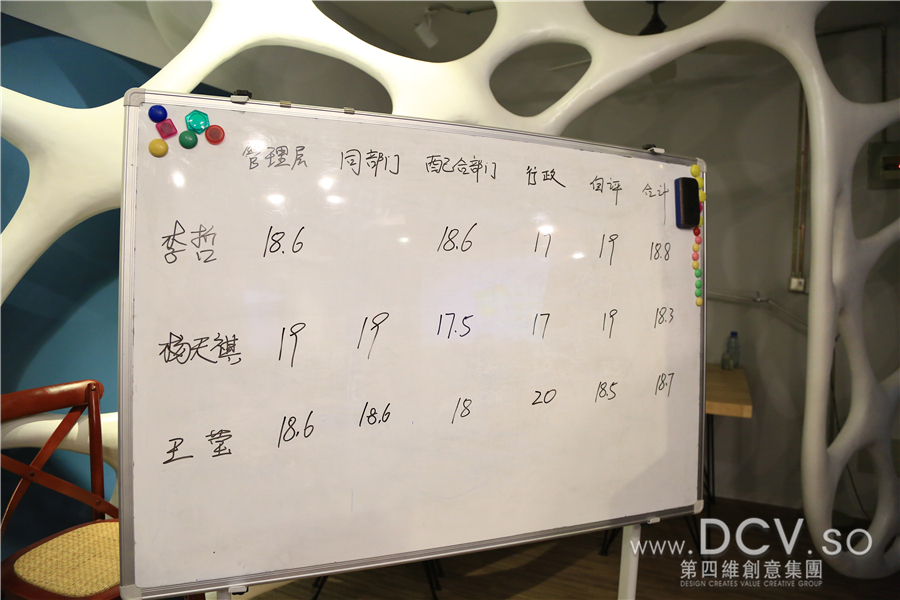 管理层 同部门 配合部门 行政 自评 合计
李哲 18.6 18.6 17 19 18.8
杨天祺 19 19 17.5 17 19 18.3
王莹 18.6 18.6 18 20 18.5 18.7
www.DCV.so
第四維創意集團
DESIGN CREATES VALUE CREATIVE GROUP